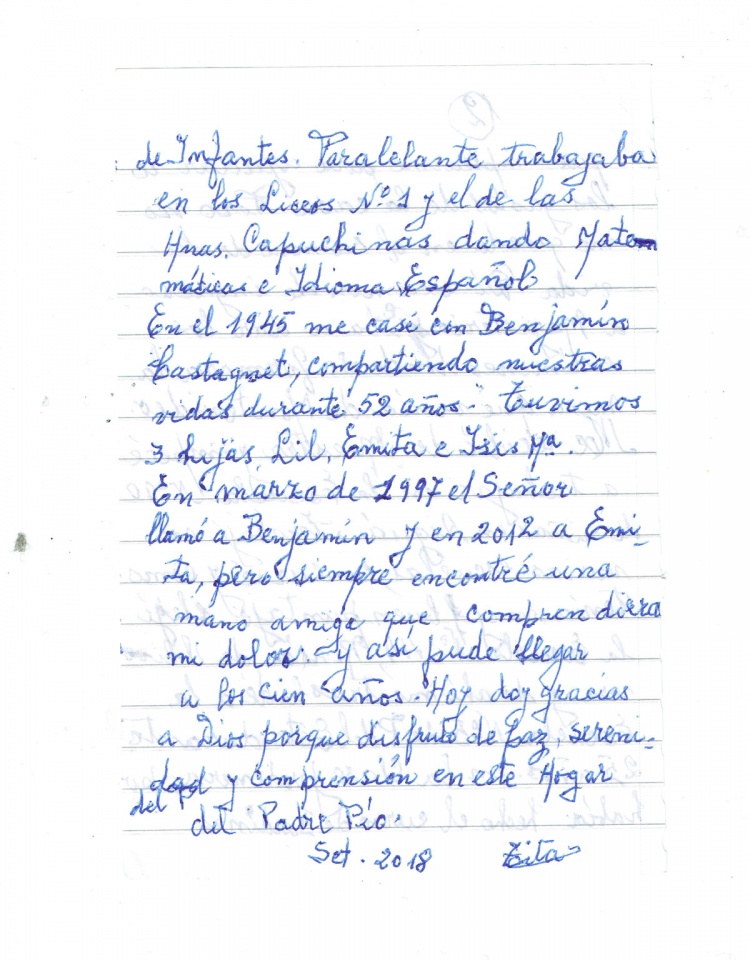 de Infantes. Paralelante trabajaba
en los Liceos Nº 1 y el de las
Hnas. Capuchinas dando Mate
máticas e Idioma Español
En el 1945 me casé con Benjamín
Castagnet, compartiendo nuestras
vidas durante 52 años.- Tuvimos
3 hijas, Lil, Emita e Isis Mª.
En marzo de 1997 el Señor
llamó a Benjamín y en 2012 a Emi-
ta, pero siempre encontré una
mano amiga que comprendiera
mi dolor. Y así pude llegar
a los cien años. Hoy doy gracias
a Dios porque disfruto de paz, sereni-
dad y comprensión en este Hogar
del Padre Pío.
Set. 2018 Zita